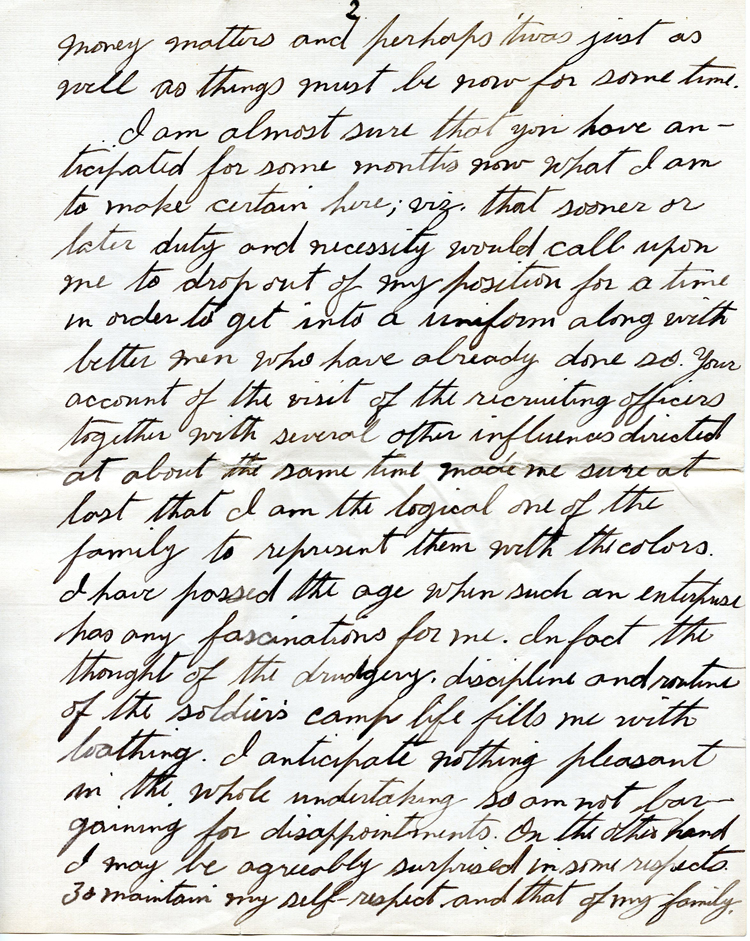 2
money matters and perhaps 'twas just as
well as things must be now for some time.
I am almost sure that you have an-
ticipated for some months now what I am
to make certain here; viz. that sooner or
later duty and necessity would call upon
me to drop out of my position for a time
in order to get into a uniform along with
better men who have already done so. Your
account of the visit of the recruiting officers
together with several other influences directed
at about the same time made me sure at
last that I am the logical one of the
family to represent them with the colors.
I have passed the age when such an enterprise
has any fascinations for me. In fact the
thought of the drudgery, discipline and routine
of the soldier's camp life fills me with
loathing. I anticipate nothing pleasant
in the whole undertaking so am not bar-
gaining for disappointments. On the other hand
I may be agreeably surprised in some respects.
To maintain my self-respect and that of my family,